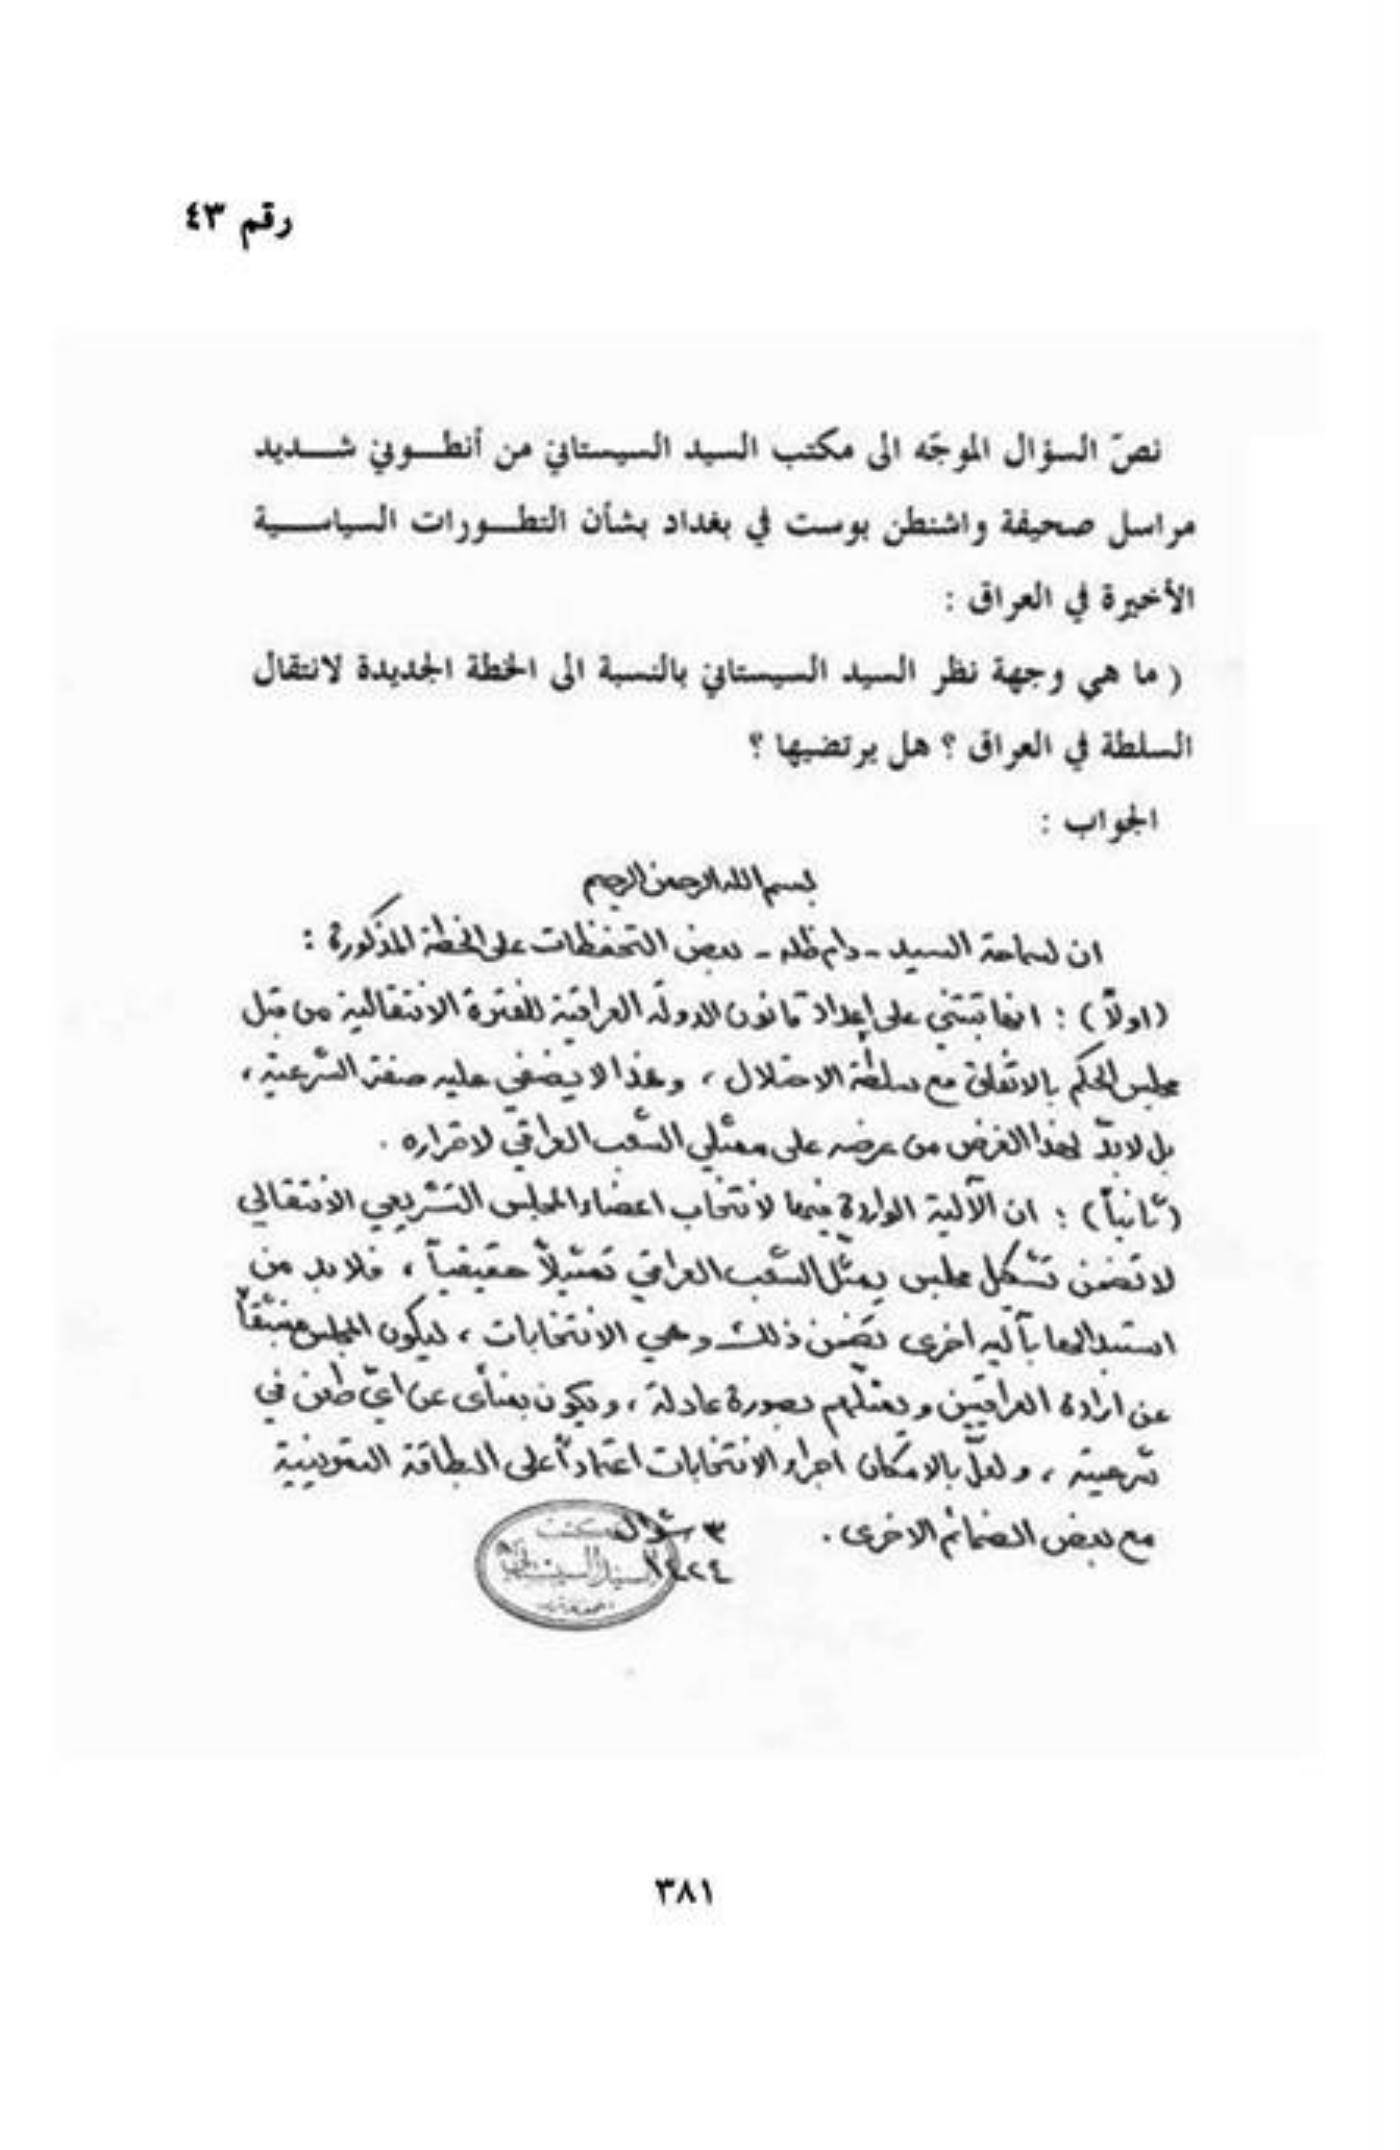 رقم ٤٣
نصّ السؤال الموجّه الى مكتب السيد السيستاني من أنطوني شديد
مراسل صحيفة واشنطن بوست في بغداد بشأن التطورات السياسية
الأخيرة في العراق :
( ما هي وجهة نظر السيد السيستاني بالنسبة الى الخطة الجديدة لانتقال
السلطة في العراق ؟ هل يرتضيها ؟
الجواب :
بسم الله الرحمن الرحيم
ان لسماحة السيد - دام ظله - بعض التحفظات على الخطة المذكورة :
(اولاً) : انها تبتني على إعداد قانون الدولة العراقية للفترة الانتقالية من قبل
مجلس الحكم بالاتفاق مع سلطة الاحتلال ، وهذا لا يضفي عليه صفة الشرعية ،
بل لابدّ لهذا الغرض من عرضه على ممثلي الشعب العراقيّ لاقراره .
(ثانياً) : ان الآلية الواردة فيها لانتخاب اعضاء المجلس التشريعي الانتقالي
لا تضمن تشكل مجلس يمثّل الشعب العراقي تمثيلاً حقيقياً ، فلابد من
استبدالها بآلية اخرى تضمن ذلك وهي الانتخابات ، ليكون المجلس منبثقاً
عن ارادة العراقيين ويمثّلهم بصورة عادلة ، ويكون بمنأى عن ايّ طعن في
شرعيته ، ولعلّ بالامكان اجراء الانتخابات اعتماداً على البطاقة التموينية
مع بعض الضمائم الاخرى . ٣ شوال
١٤٢٤
مكتب
السيد السيستاني
٣٨١